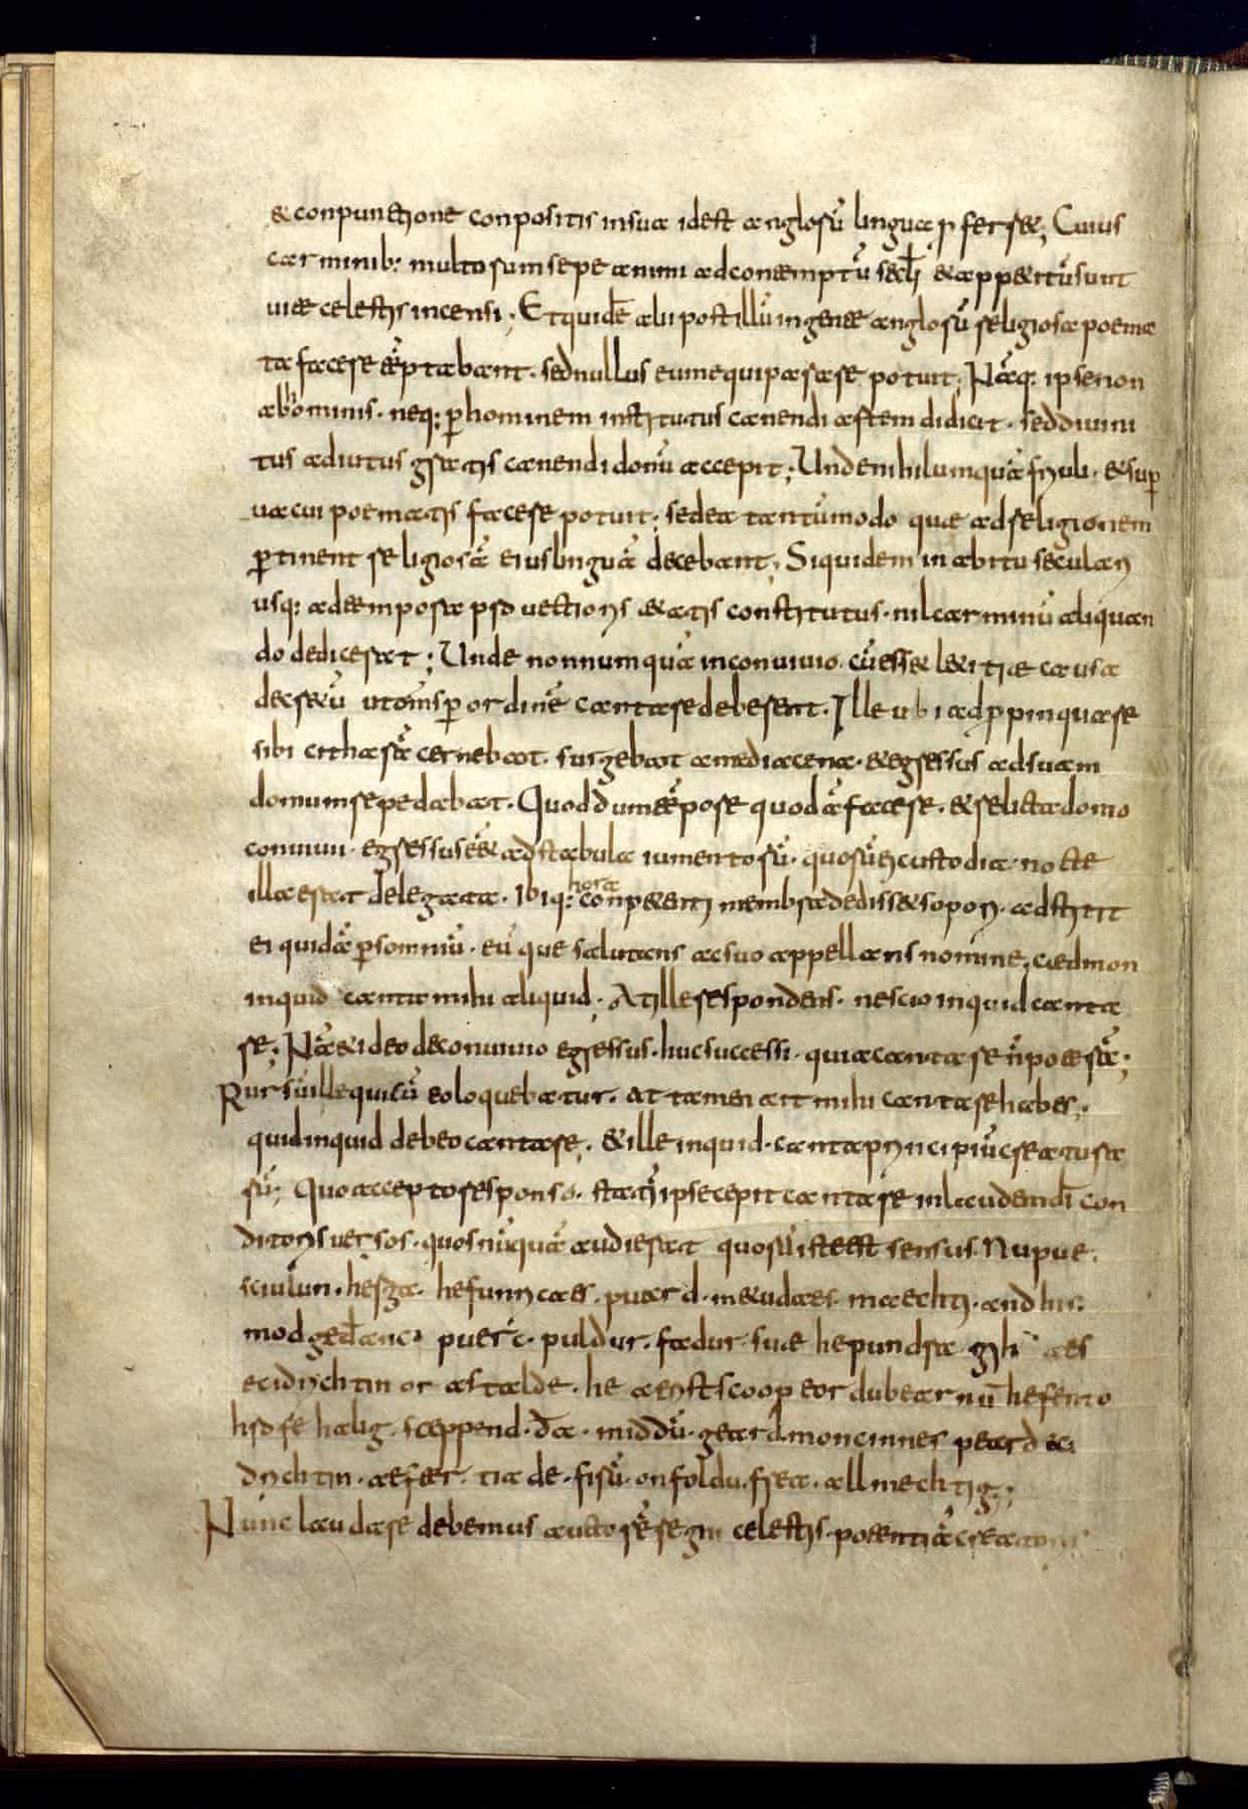 & conpunctione conpositis in sua id est anglorū lingua ꝓferret; Cuius
carminib: multorum sepe animi ad contemptū sęcli & appetitū sunt
uitae celestis incensi; Et quidē alii post illū in gente anglorū religiosa poema
ta facere tēptabant. sed nullus eum equiparare potuit; Nāq: ipse non
ab hominis. neq: ꝑ hominem institutus canendi artem didicit. sed diuini
tus adiutus gratis canendi donū accepit; Unde nihil umquā friuoli. & suꝑ
uacui poematis facere potuit; sed ea tantūmodo quae ad religionem
ꝑtinent religiosā eius linguā decebant; Siquidem in abitu seculari
usq: ad tempora prouectioris &atis constitutus. nil carminū aliquan
do dedicerat; Unde nonnumquā in conuiuio. cū ess& l&itiae causa
decr&ū ut om̄s ꝑ ordinē cantare deberent. Ille ubi adꝓpinquare
sibi citharā cernebat. surgebat a media cena. & egressus ad suam
domum repedabat. Quod dum tēpore quodā faceret. & relicta domo
conuiuii. egressus ē& ad stabula iumentorū. quorū ei custodia nocte
illa erat delegata. Ibiq: hora conpetenti membra dediss& sopori. adstitit
ei quidā ꝑ somniū. eū que salutans ac suo appellans nomine; caedmon
inquid canta mihi aliquid; At ille respondens. nescio inquid canta
re; Nā & ideo de conuiuio egressus. huc successi. quia cantare n̄ poterā;
Rursū ille qui cū eo loquebatur. at tamen ait mihi cantare habes;
quid inquid debeo cantare; & ille inquid. canta principiū creatura
rū; Quo accepto responso. statī ipse cepit cantare in laudem dī con
ditoris uersos. quos nūquā audierat quorū iste est sensus. Nu pue.
sciulun. herga. hefunricaes. puard. metudaes. maecti. and his.
modgedanc. puerc. puldur. fadur. sue he pundra gih aes
ecidrichtin or astalde. he aerist scoop eordubearnū hefento
hrofe halig. sceppend. ða. middū. geard. moncinnes peard eci
drichtin. aefter. tiade. firū. on foldu. frea. allmechtig;
Nunc laudare debemus auctorē regni celestis. potentiā creatoris